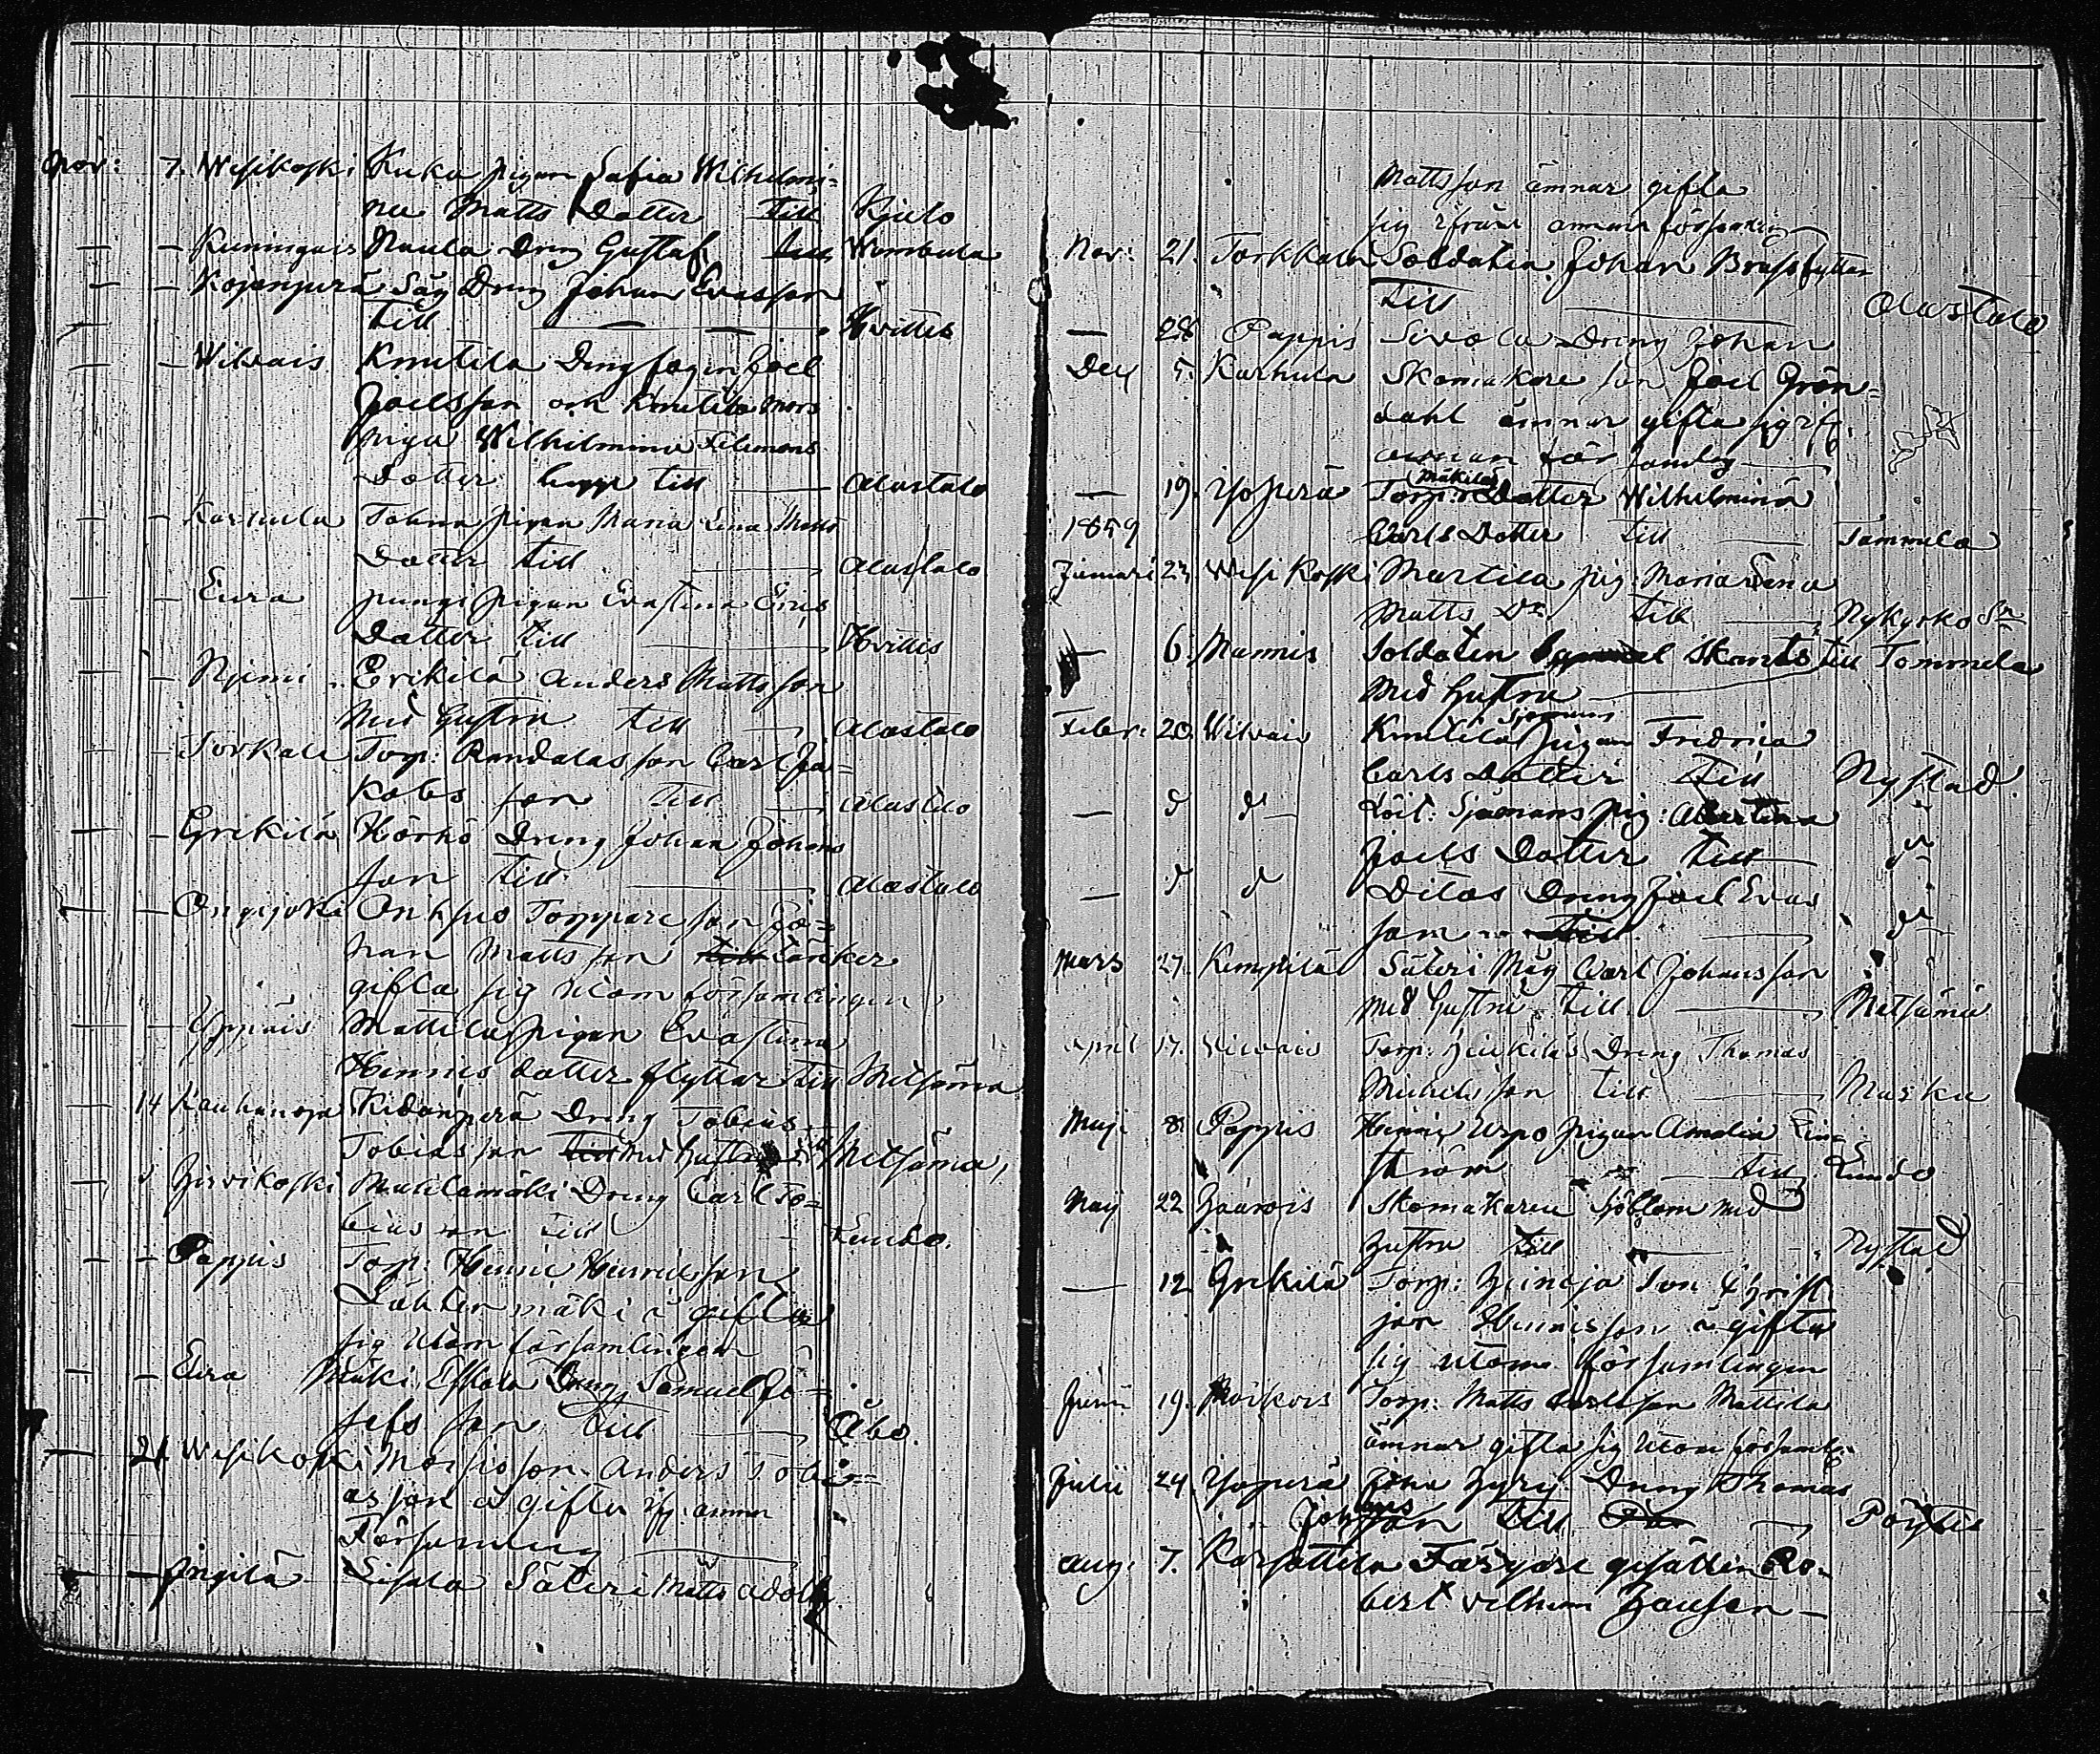 Nov: 7. Wesikoski Kuka pigan Safia Wilhelmi=
na Matts Dotter till Kjulo
— — Kuningais Naula Dreng Gustaf till Wambula
— — Kojanperä Säg Dreng Johan Evasson
till — — Hvittis
— — Wilvais Knutila Dreng Joel
Joelsson och Knutila
piga Wilhelmina Filemons
Dotter till — Alastalo
— — Karhula Tohna pigan Maria Lena Matts
Dotter till — Alastalo
— — Eura pigan Evastina Erics
Dotter till — Hvittis
— — Njemi Erikilä Anders Mattsson
Med Hustru till — Alastalo
— — Torkala Torp: Randalas son Carl Ja=
kobs son till — Alastalo
— — Yrikilä Hörhö Dreng Johan Johans
son till — Alastalo
— — Ongijoki Torppare son Jo=
han Matts son tänker
gifta sig utom församlingen
— — Uppais Mattila pigan Evastina
Hinnis dotter flyttar till Metsämä
— 14 Kauhanoja Kidanperä Dreng Tobias
Tobias son med hustru Metsämä,
d Jirvikoski Mukilamäki Dreng Carl To=
bias son till Lundo.
— — Pappis Torp: Henric Henricsson
Lähtenmäki ä gifta
sig utom församlingen
— — Eura Mäki Eskola Dreng Samuel Jo=
sefs son till — Åbo.
— 21 Wesikoski Moisio son Anders Tobi=
as son ä gifta annan
Församling —
— — Jngilä Lisala Säteri Matts Adolf
Mattsson ämnar gifta
sig ifrån annan församling
Nov: 21. Torkkala Soldaten Johan Bras flyttar
till — Alastalo
— 28 Pappis Sivola Dreng Johan
Dec 5. Karhula Skomakare son Joel Grön=
dahl ämnar gifta sig ifr.
annan församling —
— 19. Yläperä Torp: Mäkilas Dotter Wilhelmina
1859 Carls Dotter till — Tammela
Januari 23 Wesikoski Martila pig: Maria Lena
Matts Dr till — Nykyrko Sn
— 6. Mannis Soldaten Skants till Tammela
Med hustru —
Febr: 20. Wilvais Knutila Sjömans pigan Fredrica
Carls Dotter till Nystad.
— d d — Löit: Sjömans pig: Albertina
Joels Dotter till — d
— d d Ditos Dreng Joel Evas
son till — d
Mars 27. Kimpilä Säteri Måg Carl Johansson
med hustru till — Metsämä
April 17. Vilvais Torp: Dreng Thomas
Michelsson till — Masku
Maj: 8. Pappis Heinis Uspo pigan Amalia Lin
ström — till Lundo
Maij 22 Jaarois Skomakaren Sjöblom med
hustru till — Nystad
— 12 Yrikilä Torp: Son Christ
jan Hinnisson ä gifta
sig utom församlingen
Junii 19. Torp: Matts Carlsson Mattila
ämnar gifta sig utom församl:
Julii 24. Yläperä Dreng Thomas
Johans son till — Pöytis
Aug: 7. Karsattila Färgare gesällen Ro=
bert Vilhem Hansen —